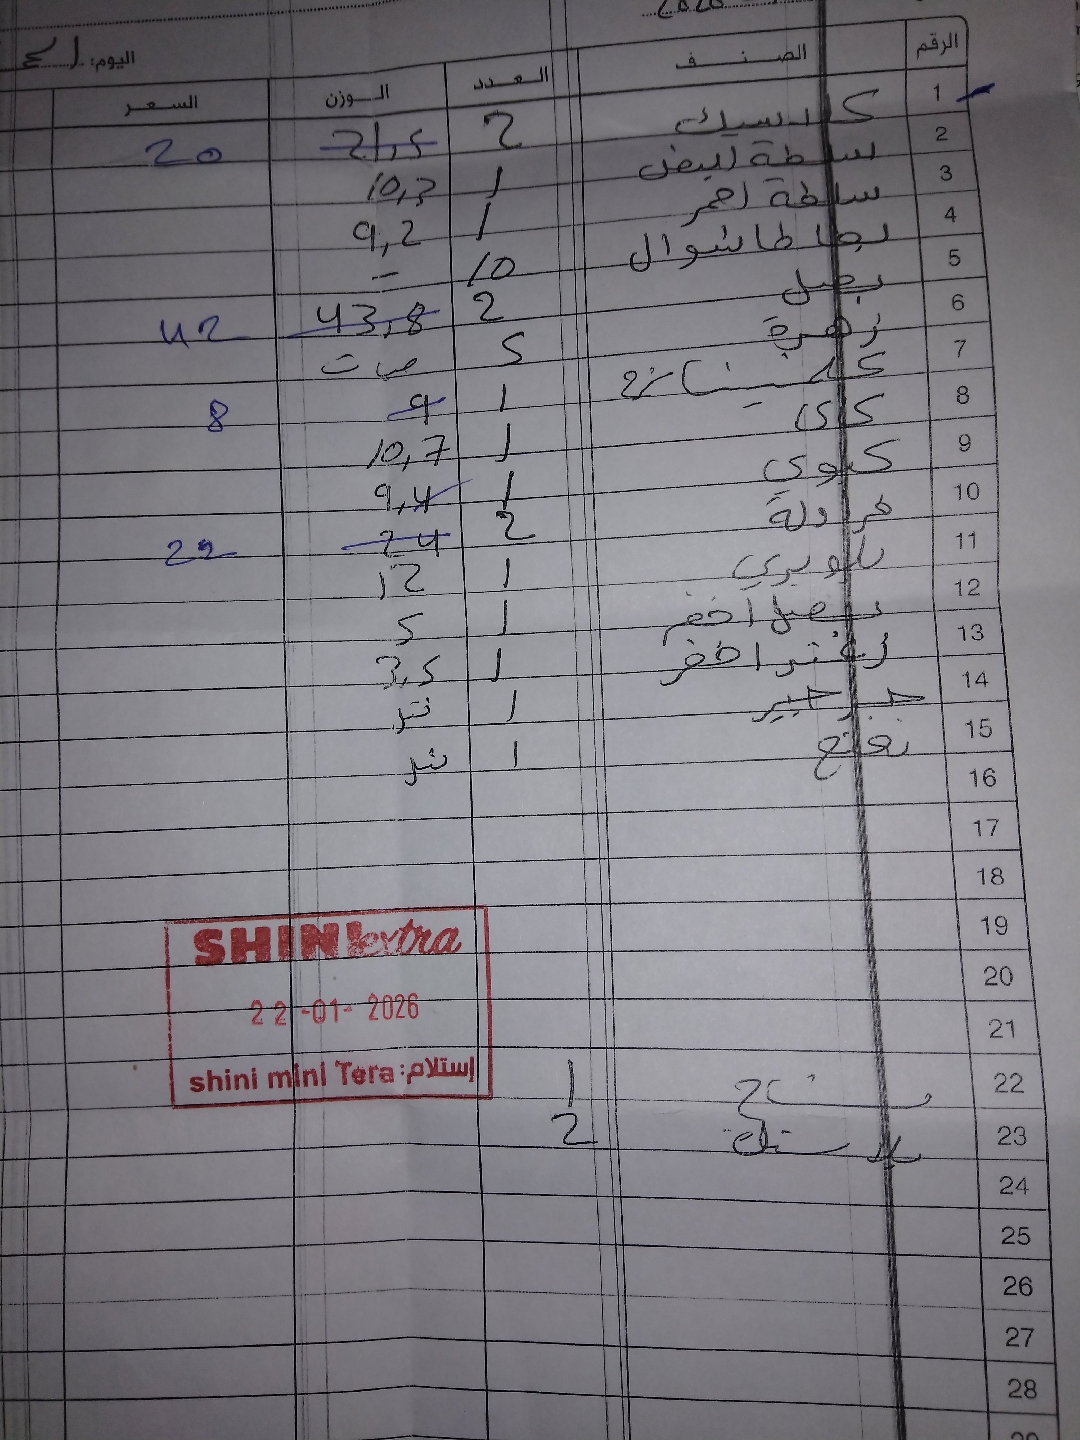 2026
اليوم:
الرقم الصنف العدد الوزن السعر
1 كلاسيك 2 21,5 20
2 سلطة ابيض 1 10,3
3 سلطة احمر 1 9,2
4 بطاطا شوال 10 -
5 بصل 2 43,8 42
6 زهرة 5
7 كلمنتينا 1 9 8
8 كاكا 1 10,7
9 كيوي 1 9,4
10 2 24 22
11 1 12
12 بصل اخضر 1 5
13 زعتر اخضر 1 3,5
14 جرجير 1
15 نعنع 1
16
17
18
19
SHINI extra
20
22-01-2026
21
shini mini Tera :إستلام
22 1
23 بلاستك 2
24
25
26
27
28
29